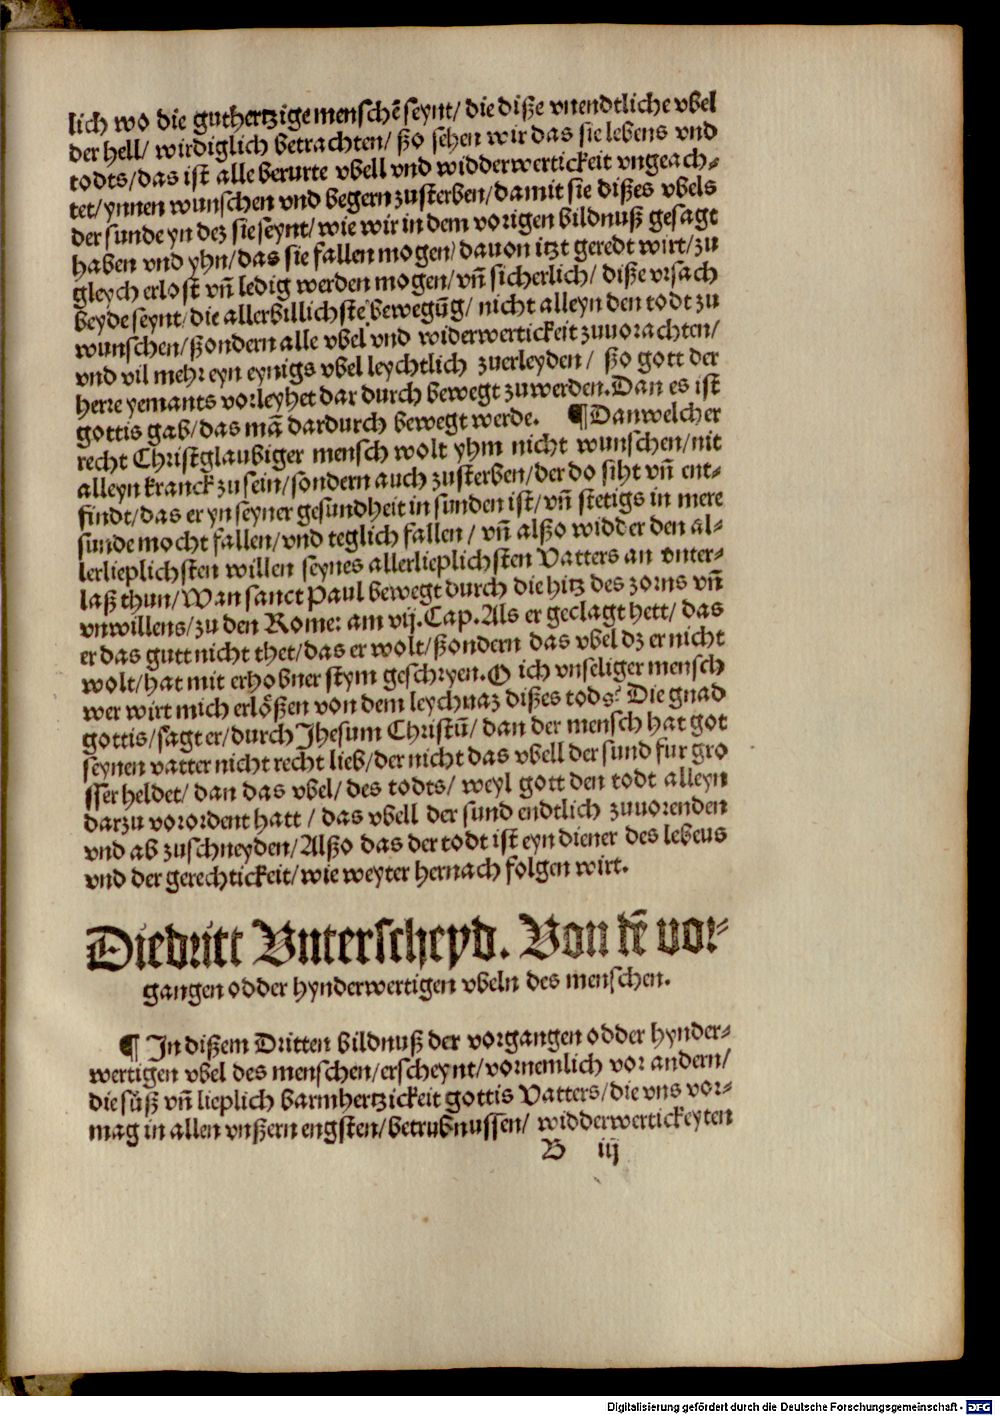 lich wo die guthertzige menschẽ seynt/ die diße vnendtliche vbel
der hell/ wirdiglich betrachten/ ßo sehen wir das sie lebens vnd
todts/ das ist alle berurte vbell vnd widderwertickeit vngeach-
tet/ ynnen wunschen vnd begern zusterben/ damit sie dißes vbels
der sunde yn dez sie seynt/ wie wir in dem vorigen bildnuß gesagt
haben vnd yhn/ das sie fallen mogen/ dauon itzt geredt wirt/ zu
gleych erlost vñ ledig werden mogen/ vñ sicherlich/ diße vrsach
beyde seynt/ die allerbillichste bewegũg/ nicht alleyn den todt zu
wunschen/ ßondern alle vbel vnd widerwertickeit zuuorachten/
vnd vil mehr eyn eynigs vbel leychtlich zuerleyden/ ßo gott der
herre yemants vorleyhet dar durch bewegt zuwerden. Dan es ist
gottis gab/ das mã dardurch bewegt werde. ¶ Dan welcher
recht Christglaubiger mensch wolt yhm nicht wunschen/ nit
alleyn kranck zu sein/ sondern auch zusterben/ der do siht vñ ent-
findt/ das er yn seyner gesundheit in sunden ist/ vñ stetigs in mere
sunde mocht fallen/ vnd teglich fallen/ vñ alßo widder den al-
lerlieplichsten willen seynes allerlieplichsten Vatters an vnter-
laß thun/ Wan sanct Paul bewegt durch die hitz des zorns vñ
vnwillens/ zu den Rome: am vij. Cap. Als er geclagt hett/ das
er das gutt nicht thet/ das er wolt/ ßondern das vbel dz er nicht
wolt/ hat mit erhobner stym geschryen. O ich vnseliger mensch
wer wirt mich erlößen von dem leychnaz dißes tods? Die gnad
gottis/ sagt er/ durch Jhesum Christũ/ dan der mensch hat got
seynen vatter nicht recht lieb/ der nicht das vbell der sund fur gro
sser heldet/ dan das vbel/ des todts/ weyl gott den todt alleyn
darzu vorordent hatt/ das vbell der sund endtlich zuuorenden
vnd ab zuschneyden/ Alßo das der todt ist eyn diener des lebeus
vnd der gerechtickeit/ wie weyter hernach folgen wirt.
Die dritt Vnterscheyd. Von dẽ vor-
gangen odder hynderwertigen vbeln des menschen.
¶ In dißem Dritten bildnuß der vorgangen odder hynder-
wertigen vbel des menschen/ erscheynt/ vornemlich vor andern/
die süß vñ lieplich barmhertzickeit gottis Vatters/ die vns vor-
mag in allen vnßern engsten/ betrubnussen/ widderwertickeyten
B iij
Digitalisierung gefördert durch die Deutsche Forschungsgemeinschaft - DFG